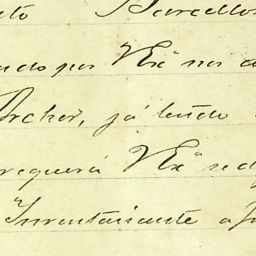 to Barcellos
ado por V Exª nos a
Archer, já tendo
requerá V Exª se dig
Inventariante a J